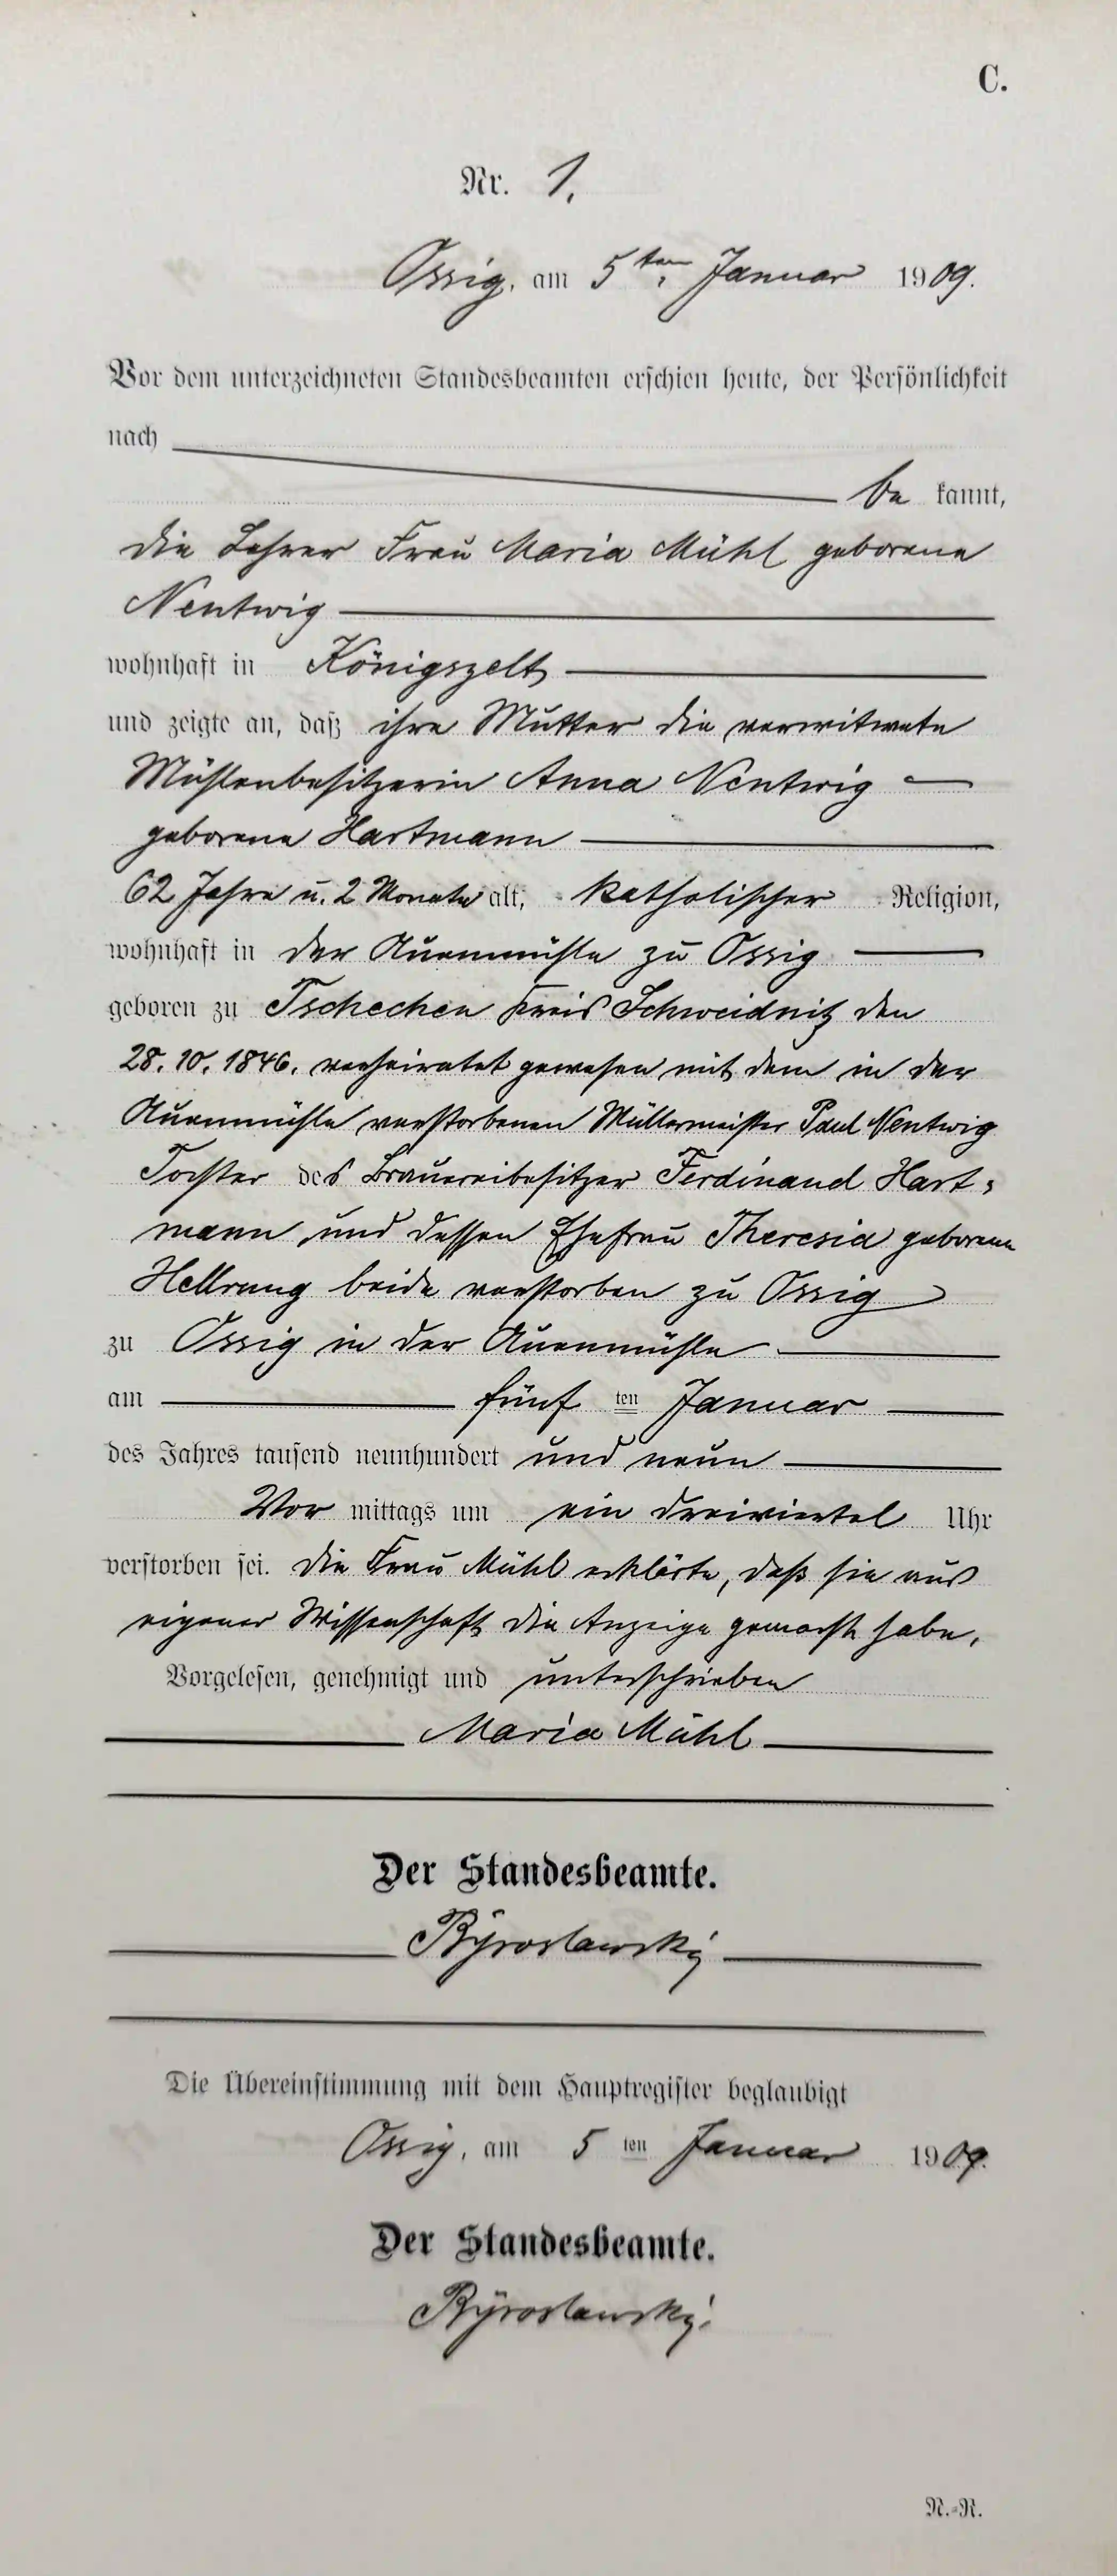 C.
Nr. 1.
Ossig, am 5ten Januar 1909.
Vor dem unterzeichneten Standesbeamten erschien heute, der Persönlichkeit
nach
be kannt,
die Lehrer Frau Maria Mühl geborene
Nentwig
wohnhaft in Königszelt
und zeigte an, daß ihre Mutter die verwitwete
Mühlenbesitzerin Anna Nentwig
geborene Hartmann
62 Jahre u. 2 Monate alt, katholischer Religion,
wohnhaft in der Auenmühle zu Ossig
geboren zu Tschechen Kreis Schweidnitz den
28. 10. 1846. verheiratet gewesen mit dem in der
Auenmühle verstorbenen Müllermeister Paul Nentwig
Tochter des Brauereibesitzer Ferdinand Hart=
mann und dessen Ehefrau Theresia geborene
Hellrung beide verstorben zu Ossig
zu Ossig in der Auenmühle
am fünf ten Januar
des Jahres tausend neunhundert und neun
Vor mittags um ein dreiviertel Uhr
verstorben sei. Die Frau Mühl erklärte, daß sie aus
eigener Wissenschaft die Anzeige gemacht habe.
Vorgelesen, genehmigt und unterschrieben
Maria Mühl
Der Standesbeamte.
Die Übereinstimmung mit dem Hauptregister beglaubigt
Ossig, am 5 ten Januar 1909.
Der Standesbeamte.
N.=R.